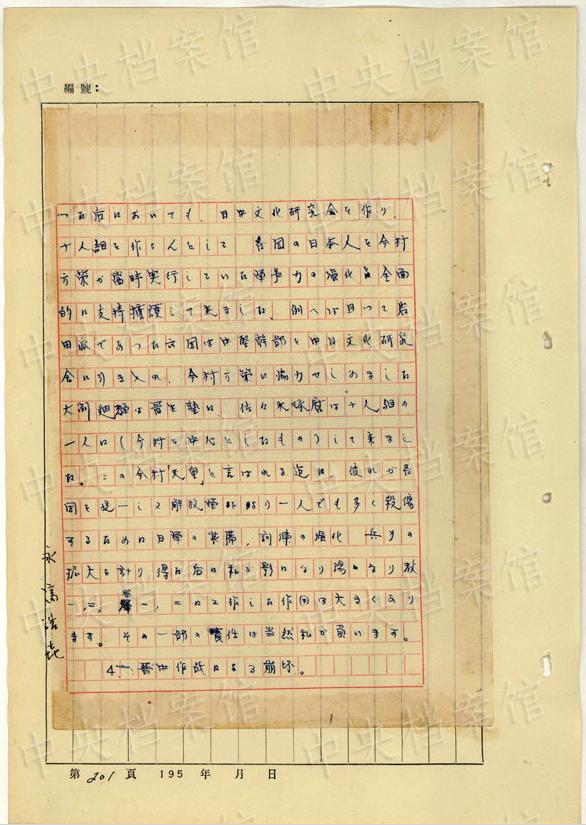 編號：
った后においても、日中文化研究会を作り、
十人組を作らんとして 各団の日本人を今村
方策が当時実行していた軍事力の強化を全面
的に支持擁護して来ました。例へば曰って岩
田派であった六団は中堅幹部を中日文化研究
会に引き入れ、今村方策に協力せしめました
は晋生塾に、佐々木 は十人組の
一人に（今村を中心としたもの）して来まし
た。この今村天皇と言はれる迄に、彼れが各
団を統一して解放軍 より一人でも多く殺傷
するために日軍の装備、訓練の強化 兵力の
拡大を計り得た后に私が影になり陽になり教
一、二、 一、二にて作した作用は大きくあり
ます。その一部の責任は当然私が負います。
4— 晋中作战による崩坏。
永富浩喜
第 201 頁 195 年 月 日
中央档案馆